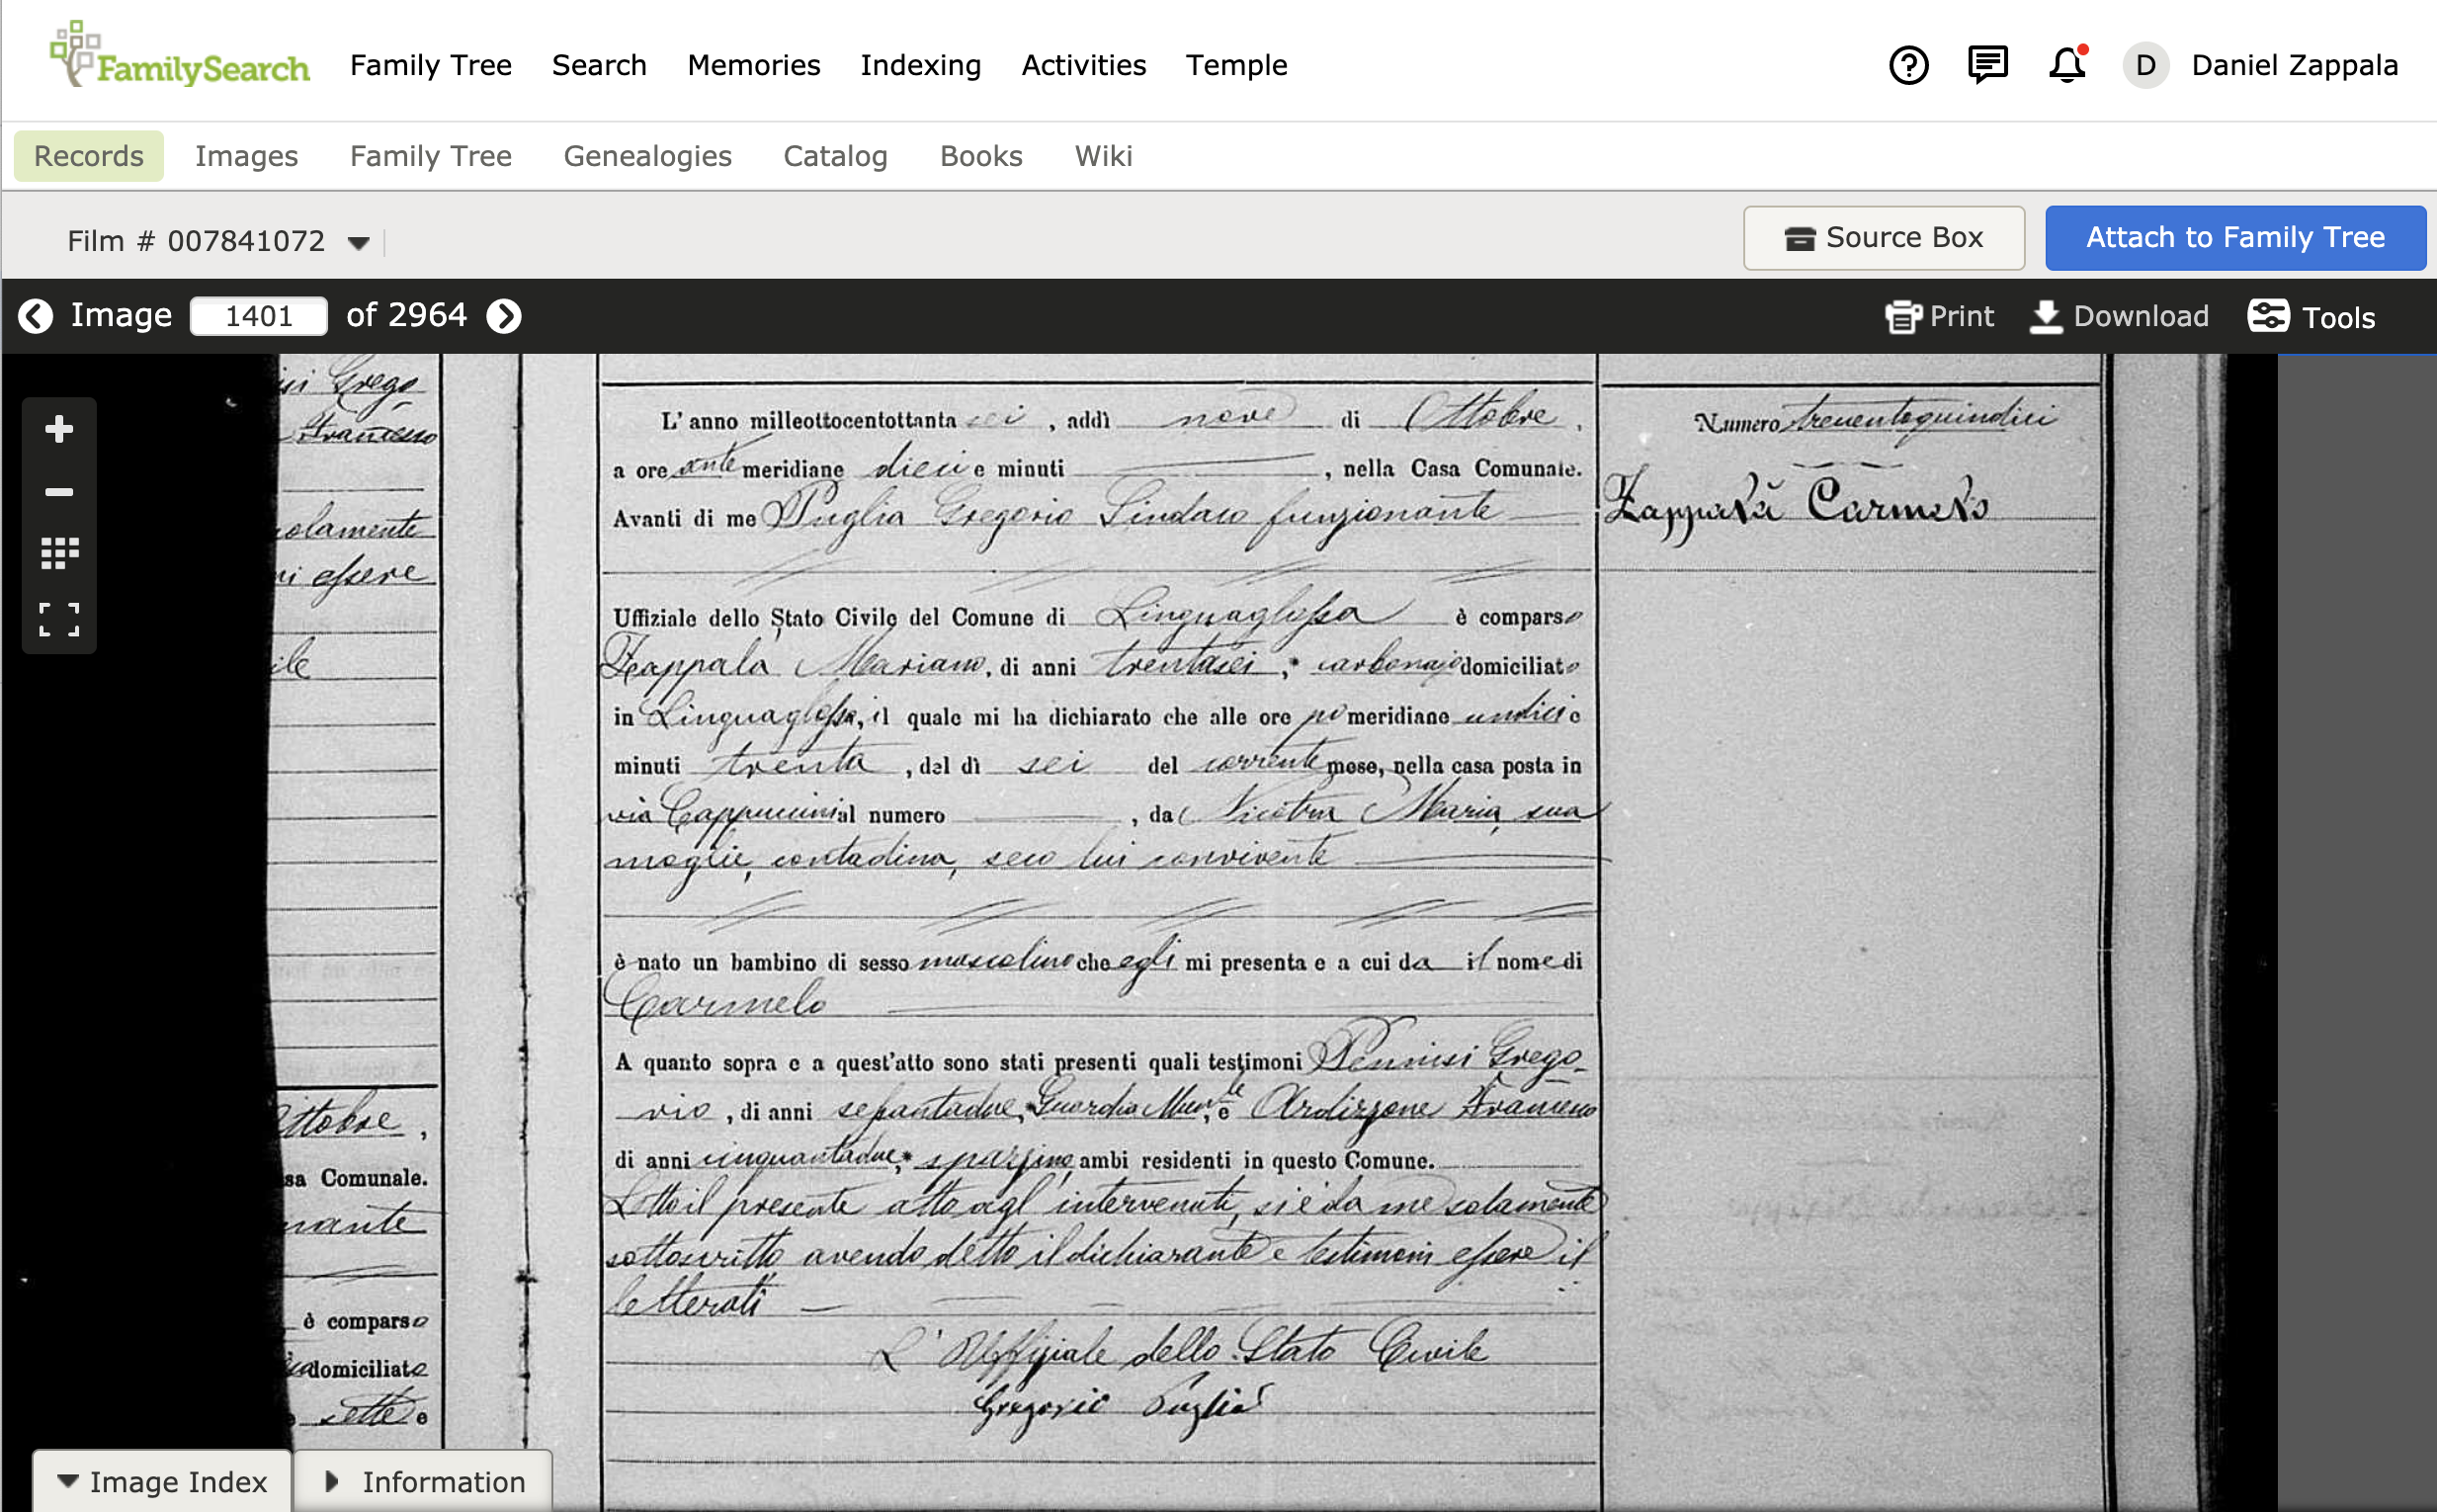 FamilySearch
Family Tree
Search
Memories
Indexing
Activities
Temple
D
Daniel Zappala
Records
Images
Family Tree
Genealogies
Catalog
Books
Wiki
Film # 007841072
Source Box
Attach to Family Tree
Image 1401 of 2964
Print
Download
Tools
Grego
Francesco
solamente
essere
ile
Ottobre,
sa Comunale.
nante
è comparso
domiciliato
sette e
L' anno milleottocentottanta sei, addì nove di Ottobre,
a ore ante meridiane dieci e minuti , nella Casa Comunale.
Avanti di me Puglia Gregorio Sindaco funzionante
Uffiziale dello Stato Civile del Comune di Linguaglossa è comparso
Zappalà Mariano, di anni trentasei, carbonajo domiciliato
in Linguaglossa, il quale mi ha dichiarato che alle ore po meridiane undici e
minuti trenta, del dì sei del corrente mese, nella casa posta in
via Cappuccini al numero , da Nicotra Maria, sua
moglie, contadina, seco lui convivente
è nato un bambino di sesso mascolino che egli mi presenta e a cui da il nome di
Carmelo
A quanto sopra e a quest'atto sono stati presenti quali testimoni Pennisi Grego-
rio, di anni settantadue, Guardia Munle, e Ardizzone Francesco
di anni cinquantadue, ambi residenti in questo Comune.
Letto il presente atto agl' intervenuti, si è da me solamente
sottoscritto avendo detto il dichiarante e testimoni essere il
letterati
L' Uffiziale dello Stato Civile
Gregorio Puglia
Numero trecentoquindici
Zappalà Carmelo
Image Index
Information